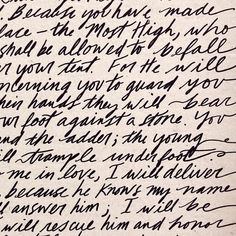 Because you have made
lace - the Most High, who
shall be allowed to befall
r your tent. For He will
ncerning you to guard you
heir hands they will bear
our foot against a stone. You
nd the adder; the young
ill trample underfoot
to me in love, I will deliver
because he knows my name
ll answer him; I will be
will rescue him and honor